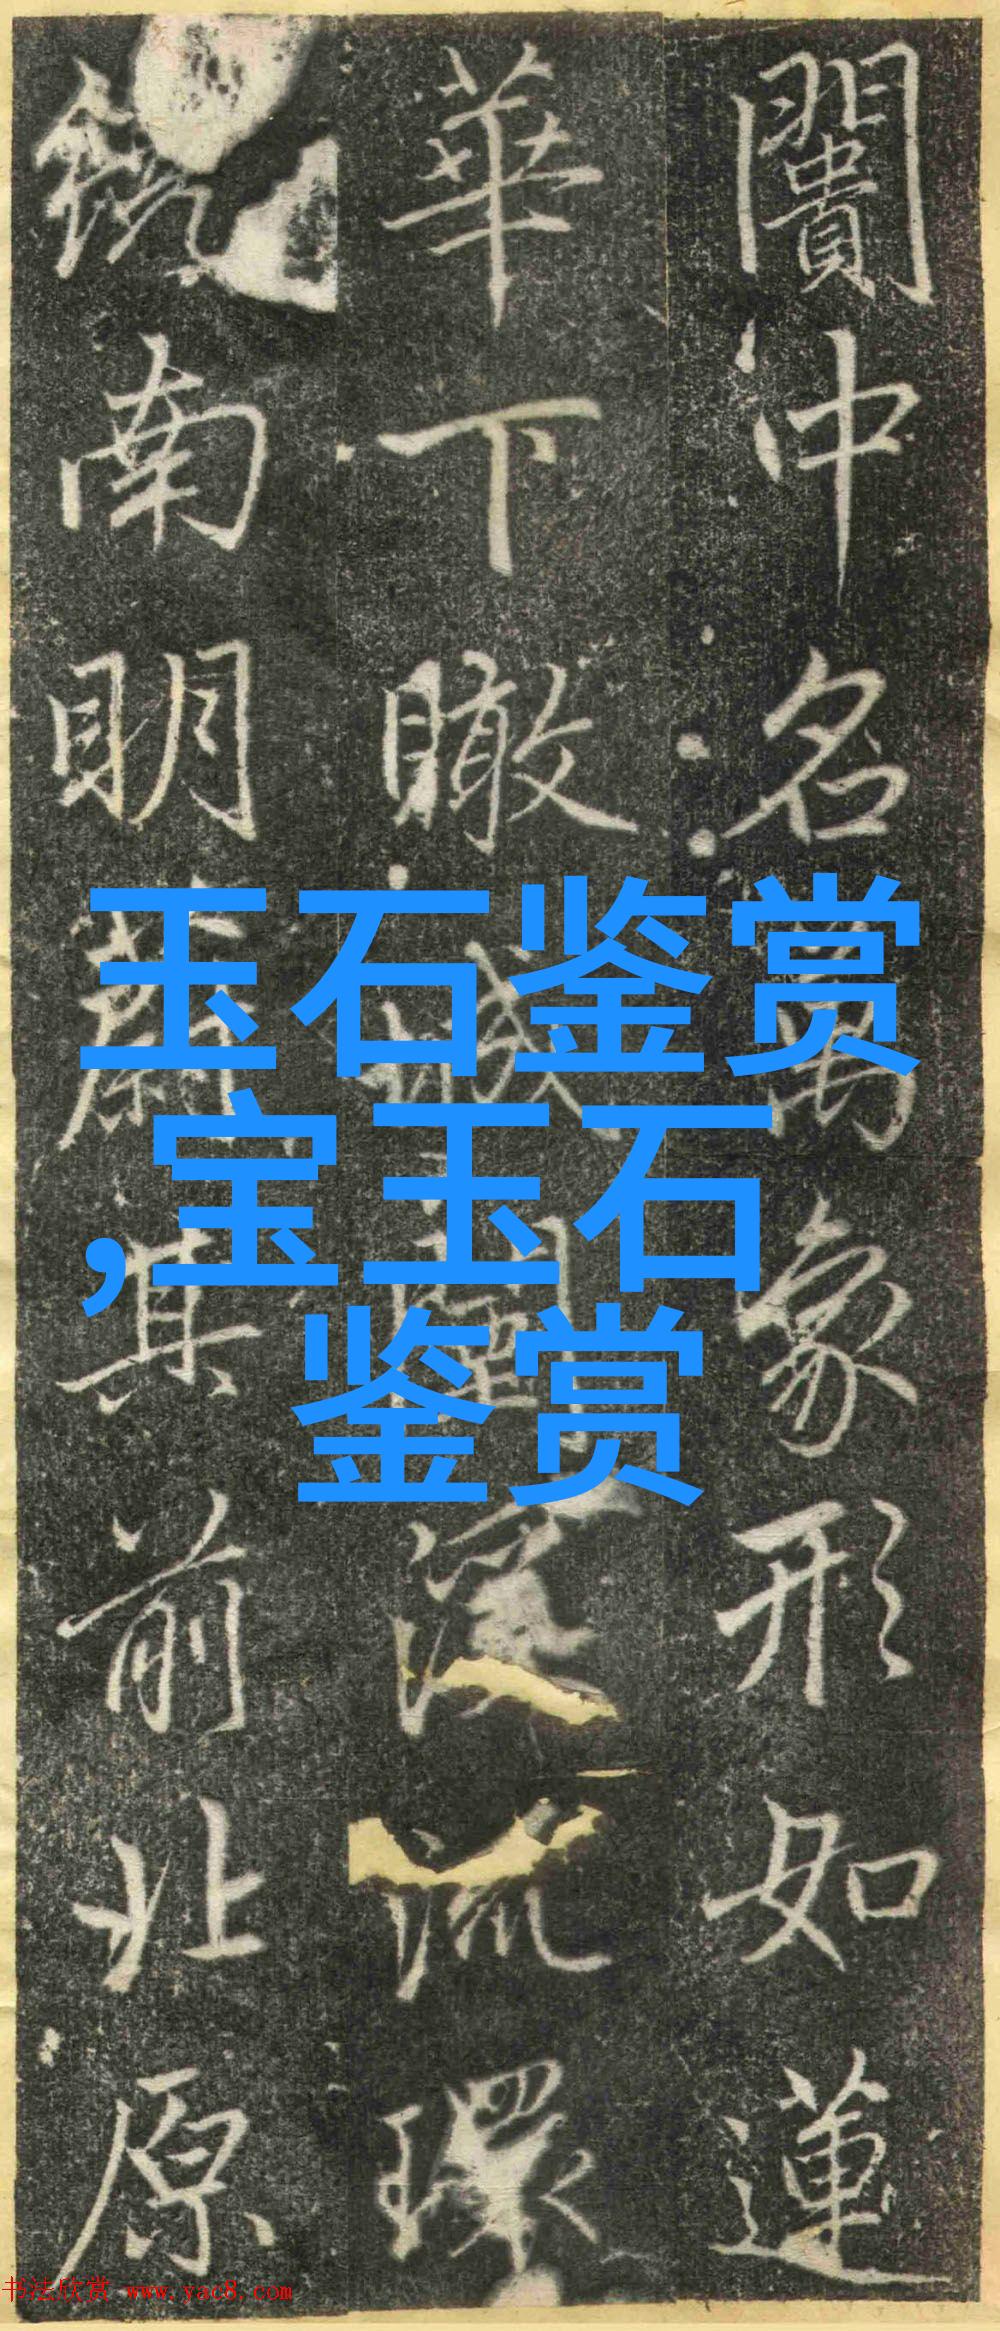 闠中名萬象形如蓮
華下瞰城環
南明其前北原
玉石鉴赏
,宝玉石
鉴赏
书法欣赏 www.yac8.com